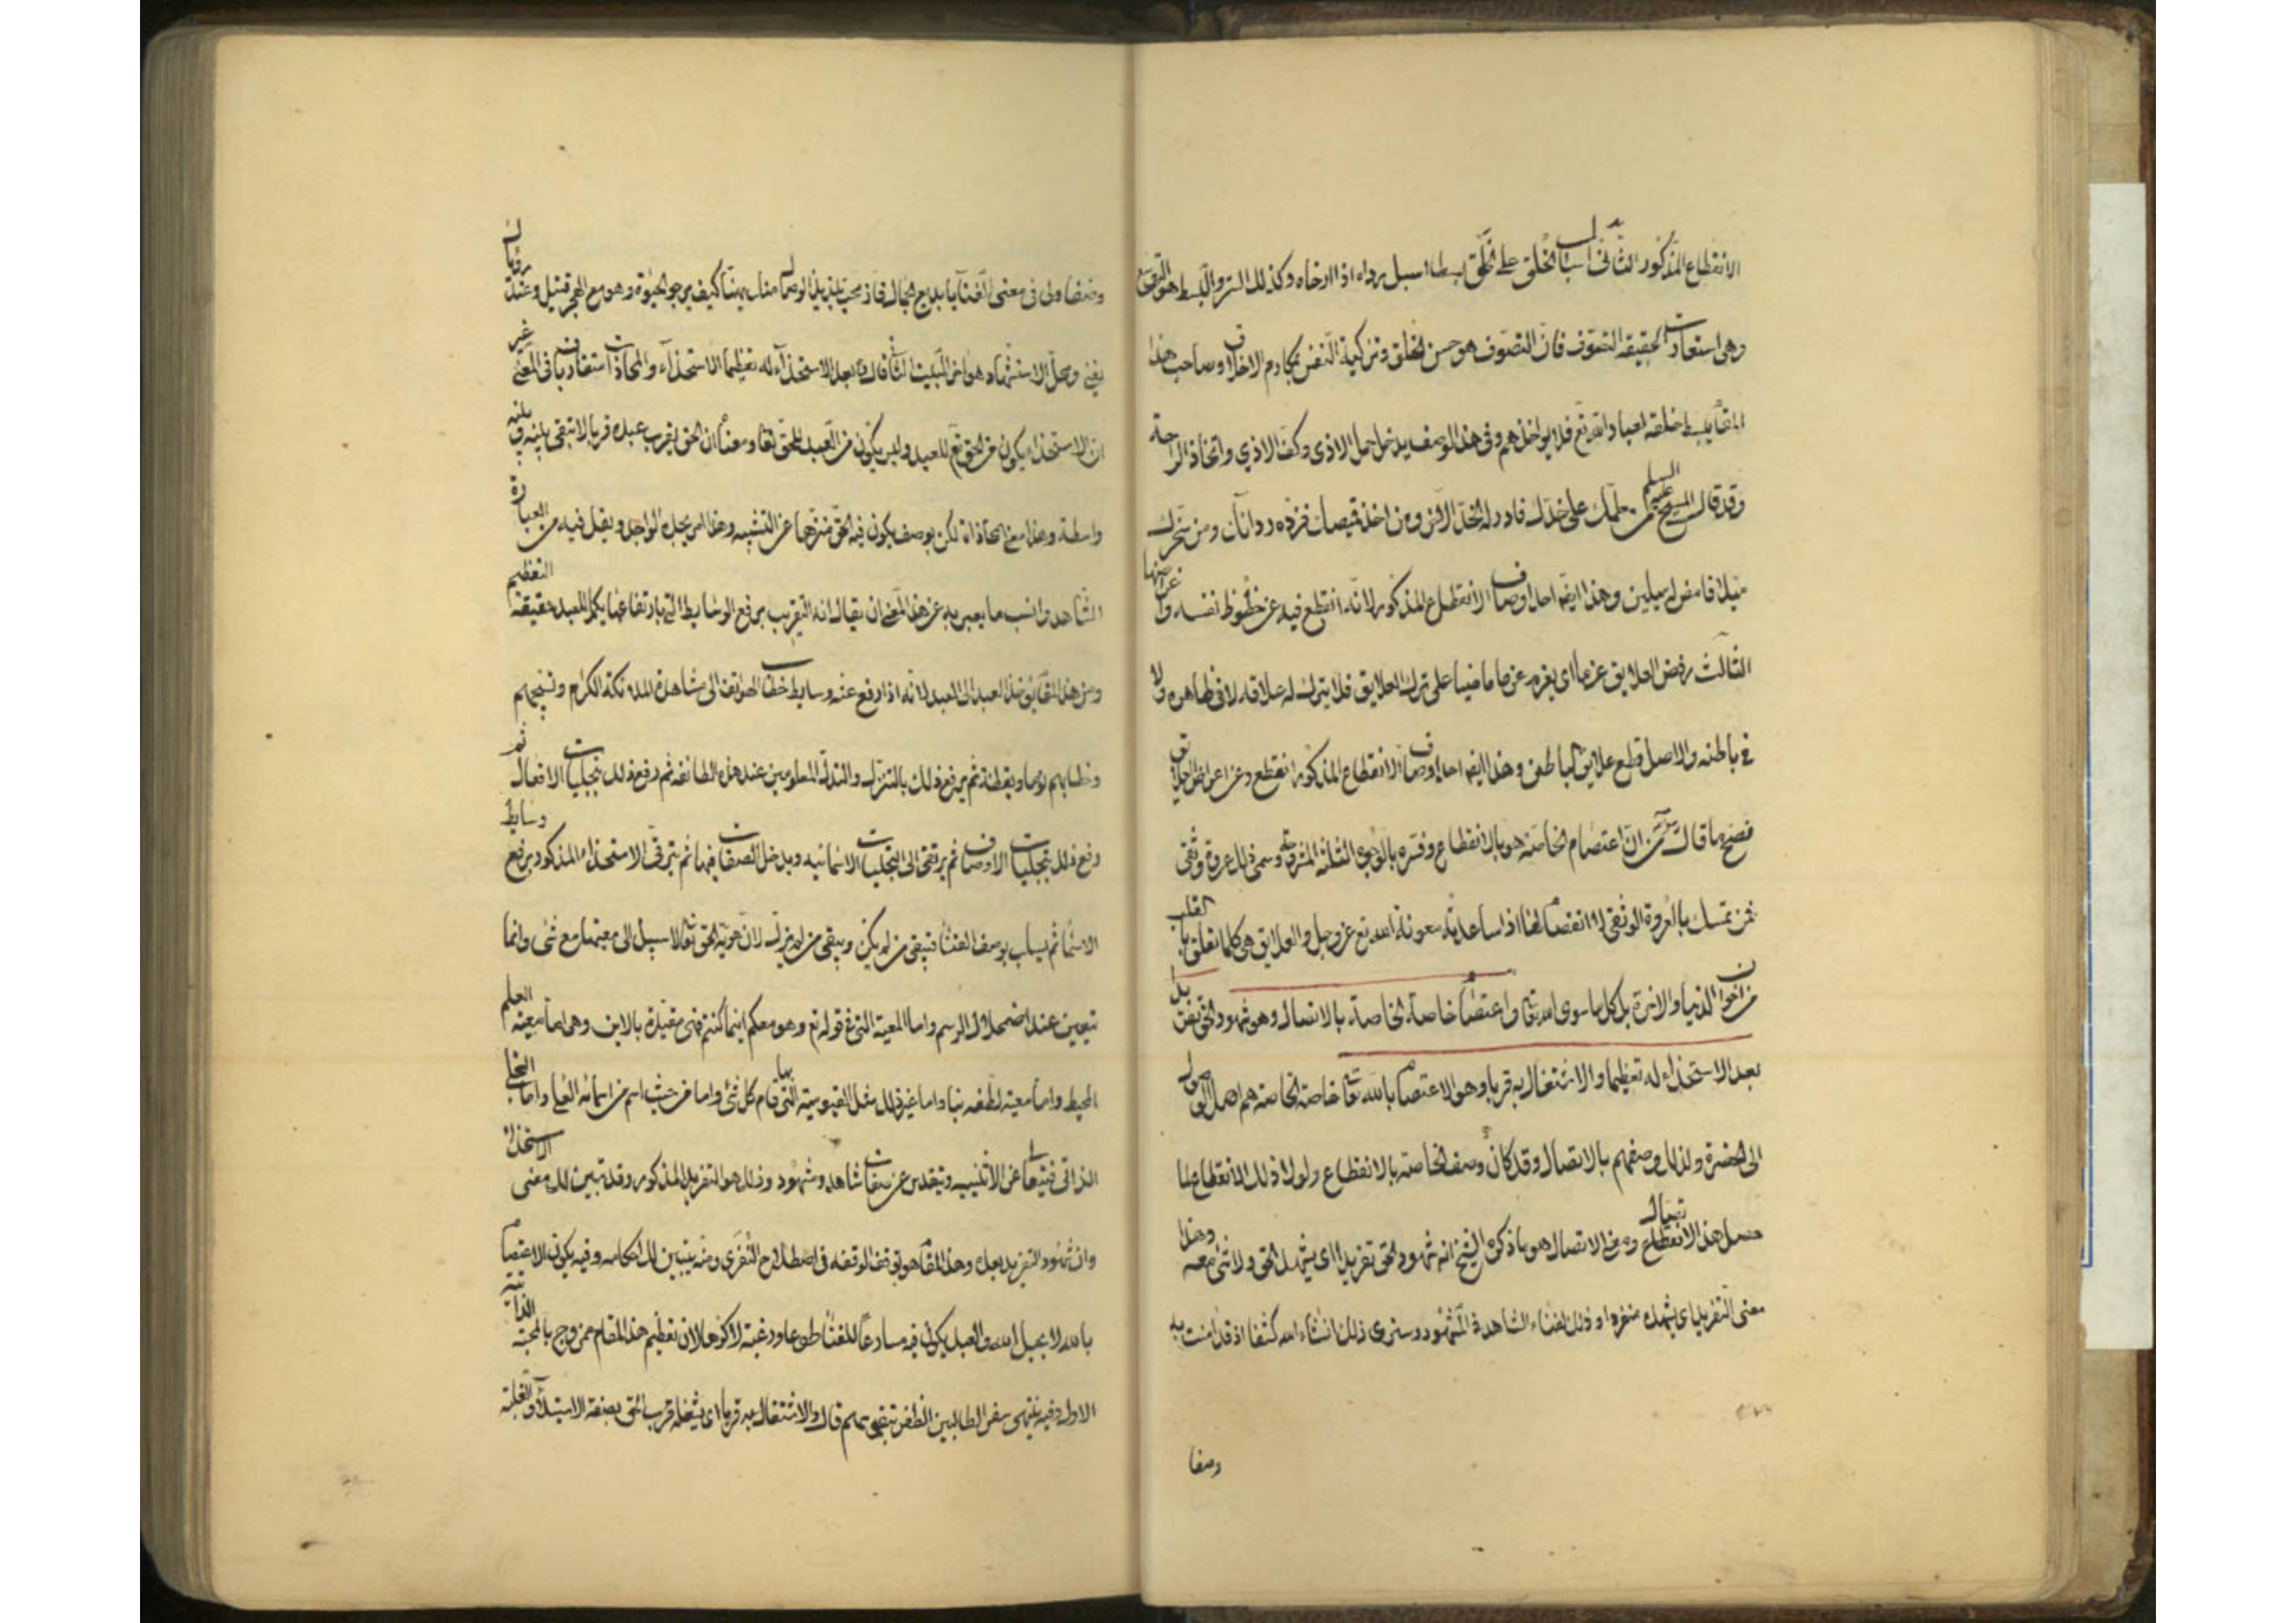 الانقطاع المذكور الثانى اسبال الخلق على الخلق بسطا اسبل رداه اذا ارخاه وكذلك الستر والبسط هو التوسع
وهى استعارت لحقيقه التصوف فان التصوف هو حسن الخلق وتزكية النفس بمكارم الاخلاق وصاحب هذا
المقام يبسط خلقه لعباد الله تع فلا يواخذهم وفى هذا الوصف يدخل حمل الاذى وكف الاذي واتخاذ الراحة
وقد قال المسيح عليه السلم من لطمك على خدك فادر له الخد الاخر ومن اخذ قميصك فزده رداك ومن سخرك
ميلا فامض له ميلين وهذا ايضا احد اوصاف الانقطاع المذكور لانه انقطع فيه عن حظوظ نفسه واغراضها
الثالث رفض العلايق عزما اى يعزم عزما ماضيا على ترك العلايق فلا يترك له علاقه لا فى ظاهره ولا
فى باطنه والاصل قطع علايق الباطن وهذا ايضا احد اوصاف الانقطاع المذكور انقطع عن اعراض العلايق
فصح ما قال ان اعتصام الخاصه هو بالانقطاع وفسره بالوجوه الثلثه المذكورة وسمى ذلك عروة وثقى
فمن تمسك بالعروة الوثقى لا انفصام لها اذا ساعدته معونة الله تع عز وجل والعلايق هى كلما تعلق بالقلب
من اكوان الدنيا والاخرة بل كل ما سوى الله تعا واعتصام خاصة الخاصة بالاتصال وهو شهود الحق تفريدا
بعد الاستخذاء له تعظيما والاشتغال به قربا وهو الاعتصام بالله تعا خاصة الخاصه هم اهل الوصول
الى الحضرة ولذلك وصفهم بالاتصال وقد كان وصف الخاصه بالانقطاع ولولا ذلك الانقطاع لما
حصل هذا الاتصال ومعنى الاتصال هو ما ذكره الشيخ انه شهود الحق تفريدا اى يشهد الحق ولا شى معه وهذا
معنى التفريد اى يشهده منفردا وذلك لفناء الشاهد فى المشهود وسترى ذلك انشاء الله كشفا اذ قد امنت به
وصفا
وصفا ولى فى معنى الفنا يا بديع الجمال فاز محب بلذيذ الوصال منك يهنا كيف يرجو الحيوة وهو مع الهجر قتيل وعند رؤياك
يفنى ومحل الاستشهاد هو اخر البيت الثانى قال بعد الاستخذاء له تعظيما الاستخذاء والمحاذات استفاد يا فى المعنى غير
ان الاستخذاء يكون من الحق تع للعبد وليس يكون من العبد للحق تعا ومعناه ان الحق يقرب عبده قربا لا تبقى بينه وبينه
واسطة وهذا معنى المحاذاة لكن بوصف يكون فيه الحق منزها عن التشبيه وهذا امر يجده الواجد ويقبل فيه من العبارة
الشاهد وانسب ما يعبر به عن هذا المعنى ان يقال انه التقريب برفع الوسايط التى بارتفاعها يكمل للعبد حقيقة التعظيم
ومن هذا المقام العبد الى العبد لانه اذا رفع عنه وسايط خطاب الهواتف الى مشاهدة الملائكة الكرام وتسبيحهم
وخطابهم نوما ويقظة ثم يرفع ذلك بالتنزل والتدلى المعلومين عند هذه الطائفه ثم رفع ذلك بتجليات الافعال ثم
رفع ذلك بتجليات الاوصاف ثم يرتقى الى التجليات الاسمائيه ويدخل الصفات فيها ثم يترقى الاستخذاء المذكور برفع وسايط
الاسماء ثم يساب بوصف الفناء فيبقى من لم يكن ويبقى من لم يزل لان هوية الحق تعا لا سبيل الى معيتها مع شى وانما
تتعين عند اضمحلال الرسم واما المعية التى فى قوله تع وهو معكم اينما كنتم فهى مقيدة بالاين وهى اما معية العلم
المحيط واما معية لطفه بنا واما غير ذلك مثل القيوميته التى قام بها كل شئ واما من حيث اسم من اسمائه العلى واما التجلى
الذاتى فيتعالى عن الاثنينيه ويتقدس عن صفات شاهد ومشهود وذلك هو التفريد المذكور وقد تبين لك معنى الاستخذاء
وان شهود التفريد بعده وهذا المقام هو موقف الوقفه فى اصطلاح النفرى ومنه يتبين لك احكامه وفيه يكون الاعتصام
بالله لا بحبل الله والعبد يكون فيه مسارعا للفناء طوعا ورغبة لا كرها لان تعظيم هذا المقام ممزوج بالمحبة الذاتية
الاول وفيه ينتهى سفر الطالبين الظفر بنفوسهم قال والاشتغال به قربا اى يشغله قرب الحق بصفة الاستيلاء والغلبة